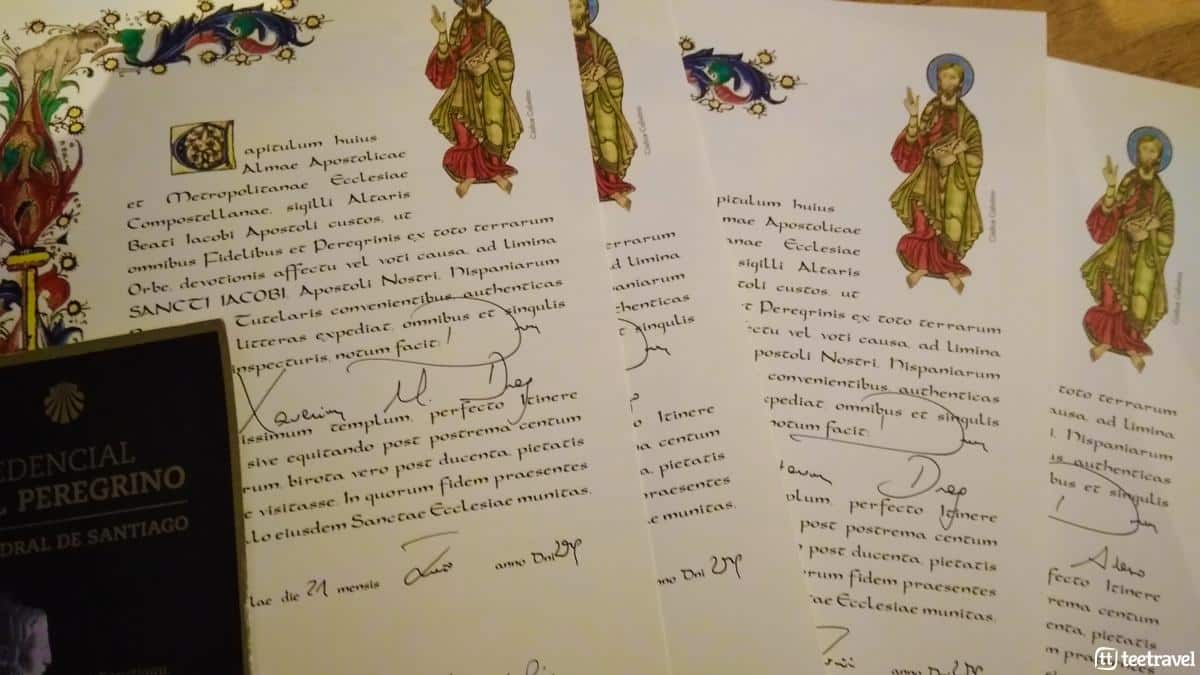 Capitulum huius
Almae Apostolicae
et Metropolitanae Ecclesiae
Compostellanae, sigilli Altaris
Beati Iacobi Apostoli custos, ut
omnibus Fidelibus et Peregrinis ex toto terrarum
Orbe, devotionis affectu vel voti causa, ad limina
SANCTI IACOBI, Apostoli Nostri, Hispaniarum
Tutelaris convenientibus, authenticas
litteras expediat, omnibus et singulis
inspecturis, notum facit:
issimum templum, perfecto Itinere
sive equitando post postrema centum
rum, birota vero post ducenta, pietatis
e visitasse. In quorum fidem praesentes
lo eiusdem Sanctae Ecclesiae munitas.
lae die 21 mensis anno Dni
Códice Calixtino
EDENCIAL
L PEREGRINO
DRAL DE SANTIAGO
terrarum
d limina
paniarum
henticas
singulis
o Itinere
a centum
a, pietatis
praesentes
e munitas.
nno Dni
pitulum huius
mae Apostolicae
anae Ecclesiae
sigilli Altaris
toli custos, ut
t Peregrinis ex toto terrarum
ctu vel voti causa, ad limina
postoli Nostri, Hispaniarum
convenientibus, authenticas
xpediat, omnibus et singulis
notum facit:
plum, perfecto Itinere
post postrema centum
post ducenta, pietatis
rum fidem praesentes
tae Ecclesiae munitas.
anno Dni
Códice Calixtino
toto terrarum
ausa, ad limina
i, Hispaniarum
s, authenticas
bus et singulis
fecto Itinere
rema centum
enta, pietatis
m praesentes
teetravel